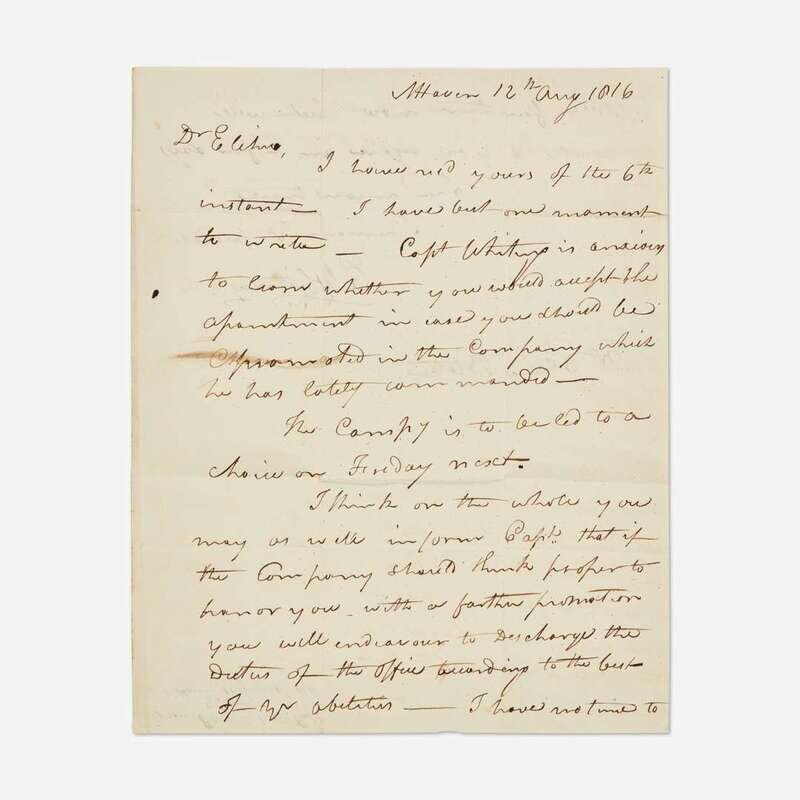 NHaven 12th Aug 1816
Dr Elihu,
I have recd yours of the 6th
instant — I have but one moment
to write — Capt Whiting is anxious
to learn whether you would accept the
apointment in case you should be
promoted in the Company which
he has lately commanded —
The Compy is to be led to a
choice on Friday next.
I think on the whole you
may as well inform Capt. that if
the Company should think proper to
honor you with a farther promotion
you will endeavour to Discharge the
Duties of the office according to the best
of yr abilities — I have no time to